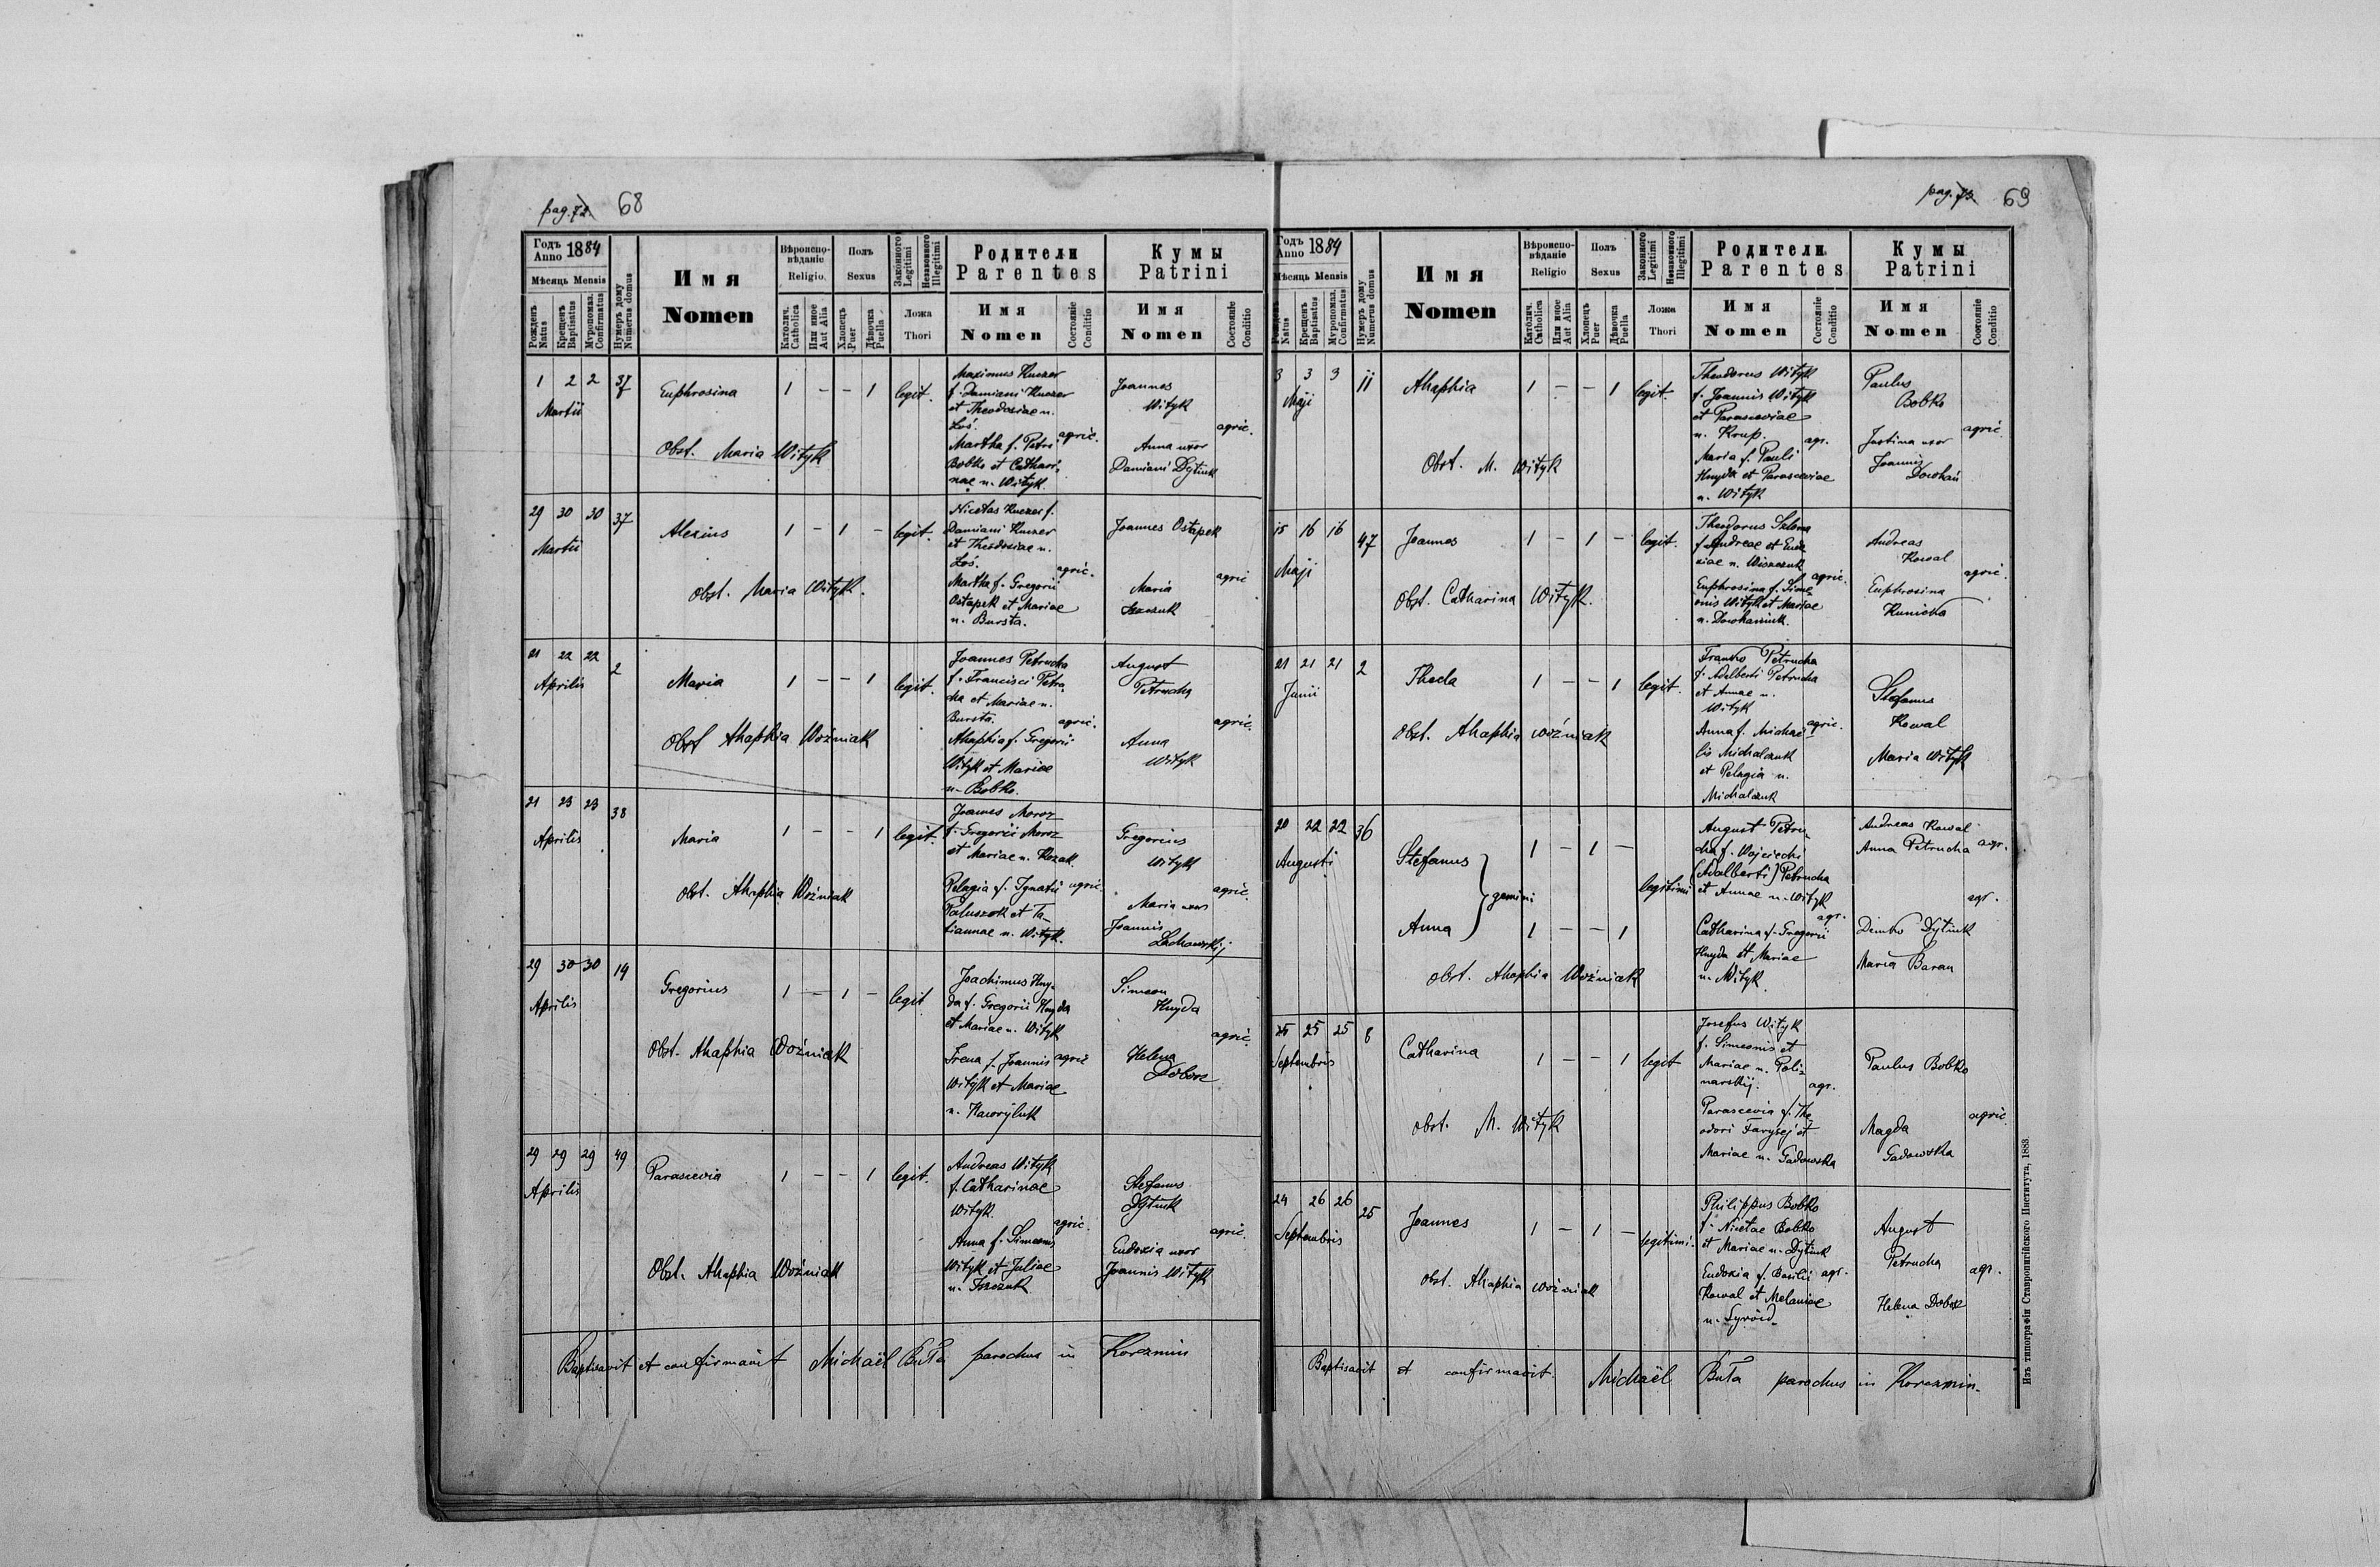 pag. 72. 68
Годъ Anno 1884
Мѣсяць Mensis
Рожденъ Natus
Крещенъ Baptisatus
Муропомаз. Confirmatus
Нумеръ дому Numerus domus
Имя
Nomen
Вѣроиспо-
вѣданіе
Religio.
Католич. Catholica
Или иное Aut Alia
Полъ
Sexus
Хлопець Puer
Дѣвочка Puella
Законного Legitimi
Незаконного Illegitimi
Ложа
Thori
Родители
Parentes
Имя
Nomen
Состояніе Conditio
Кумы
Patrini
Имя
Nomen
Состояніе Conditio
1 2 2 37
Martii
Euphrosina
1 – – 1 legit.
Obst. Maria Wityk
Maximus Kuczer
f. Damiani Kuczer
et Theodosiae n.
Łoś.
Martha f. Petri agric.
Bobko et Cathari-
nae n. Wityk.
Joannes
Wityk
agric.
Anna uxor
Damiani Dytiuk
29 30 30 37
Martii
Alexius
1 – 1 – legit.
Obst. Maria Wityk.
Nicetas Kuczer f.
Damiani Kuczer
et Theodosiae n.
Łoś.
agric.
Martha f. Gregorii
Ostapek et Mariae
n. Bursta.
Joannes Ostapek
agric
Maria
21 22 22 2
Aprilis
Maria
1 – – 1 legit.
Obst Ahaphia Woźniak
Joannes Petrucha
f. Francisci Petru-
cha et Mariae n.
Bursta. agric.
Ahaphia f. Gregorii
Wityk et Mariae
n. Bobko.
August
Petrucha
agric.
Anna
Wityk
21 23 23 38
Aprilis
Maria
1 – – 1 legit.
Obst. Ahaphia Woźniak
Joannes Moroz
f. Gregorii Moroz
et Mariae n. Kozak.
Pelagia f. Ignatii agric.
Paluszok et Ta-
tiannae n. Wityk.
Gregorius
Wityk
agric.
Maria uxor
Joannis
Lachowskij
29 30 30 14
Aprilis
Gregorius
1 – 1 – legit
Obst. Ahaphia Woźniak
Joachimus Huy-
da f. Gregorii Huyda
et Mariae n. Wityk
Irena f. Joannis agric
Wityk et Mariae
n. Hawryluk
Simeon
Huyda
agric.
Helena
Dobosz
29 29 29 49
Aprilis
Parascevia
1 – – 1 legit.
Obst. Ahaphia Woźniak
Andreas Wityk
f. Catharinae
Wityk.
agric.
Anna f. Simeonis
Wityk et Juliae
n. Iszczuk
Stefanus
Dytiuk
agric.
Eudoxia uxor
Joannis Wityk
Baptisavit et confirmavit Michaël Buła parochus in Korczmin
pag. 73. 69
Годъ Anno 1884
Мѣсяць Mensis
Рожденъ Natus
Крещенъ Baptisatus
Муропомаз. Confirmatus
Нумеръ дому Numerus domus
Имя
Nomen
Вѣроиспо-
вѣданіе
Religio
Католич. Catholica
Или иное Aut Alia
Полъ
Sexus
Хлопець Puer
Дѣвочка Puella
Законного Legitimi
Незаконного Illegitimi
Ложа
Thori
Родители
Parentes
Имя
Nomen
Состояніе Conditio
Кумы
Patrini
Имя
Nomen
Состояніе Conditio
3 3 3 11
Maji
Ahaphia
1 – – 1 legit.
Obst. M. Wityk
Theodorus Wityk
f. Joannis Wityk
et Parasceviae
n. Krup. agr.
Maria f. Pauli
Huyda et Parasceviae
n. Wityk
Paulus
Bobko
agric
Justina uxor
Joannis
Dowhań
15 16 16 47
Maji
Joannes
1 – 1 – legit.
Obst. Catharina Wityk.
Theodorus
f. Andreae et Eudo-
xiae n.
agric.
Euphrosina f. Sime-
onis Wityk et Mariae
n. Dowhaniuk.
Andreas
Kowal
agric.
Euphrosina
Kunicka
21 21 21 2
Junii
Thecla
1 – – 1 legit.
Obst. Ahaphia Woźniak
Franko Petrucha
f. Adalberti Petrucha
et Annae n.
Wityk
Anna f. Michaë- agric.
lis Michalczuk
et Pelagia n.
Michalczuk
Stefanus
Kowal
Maria Wityk
20 22 22 36
Augusti
Stefanus
1 – 1 –
gemini legitimi
Anna
1 – – 1
Obst. Ahaphia Woźniak
August Petru-
cha f. Wojciechi
(Adalberti) Petrucha
et Annae n. Wityk
agr.
Catharina f. Gregorii
Huyda et Mariae
n. Wityk
Andreas Kowal
Anna Petrucha agr.
agr.
Demko Dytiuk
Maria Baran
25 25 25 8
Septembris
Catharina
1 – – 1 legit
obst. M. Wityk
Josefus Wityk
f. Simeonis et
Mariae n. Poli-
narskij. agr.
Parascevia f. The-
odori Farysej et
Mariae n. Gadowska
Paulus Bobko
agric.
Magda
Gadowska
24 26 26 25
Septembris
Joannes
1 – 1 – legitimi.
obst. Ahaphia Woźniak
Philippus Bobko
f. Nicetae Bobko
et Mariae n. Dytiuk
Eudoxia f. Basilii agr.
Kowal et Melaniae
n. Syroid
August
Petrucha
agr.
Helena Dobosz
Baptisavit et confirmavit Michaël Buła parochus in Korczmin.
Изъ типографіи Ставропигійского Института, 1883.